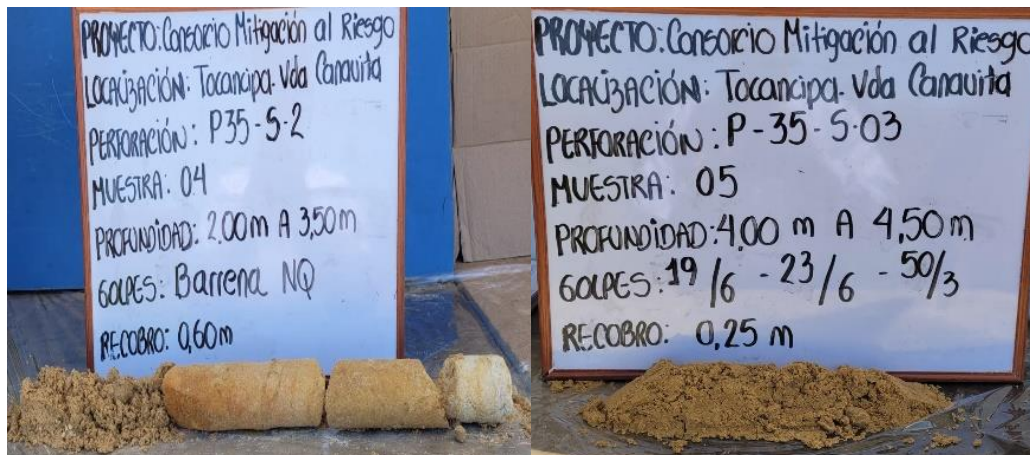 PROYECTO: Consorcio Mitigación al Riesgo
LOCALIZACIÓN: Tocancipa. Vda Canavita
PERFORACIÓN: P35-S-2
MUESTRA: 04
PROFUNDIDAD: 2.00m A 3,50m
GOLPES: Barrena NQ
RECOBRO: 0,60m
PROYECTO: Consorcio Mitigación al Riesgo
LOCALIZACIÓN: Tocancipa. Vda Canavita
PERFORACIÓN: P-35-S-03
MUESTRA: 05
PROFUNDIDAD: 4,00 m A 4,50m
GOLPES: 19/6 - 23/6 - 50/3
RECOBRO: 0,25 m